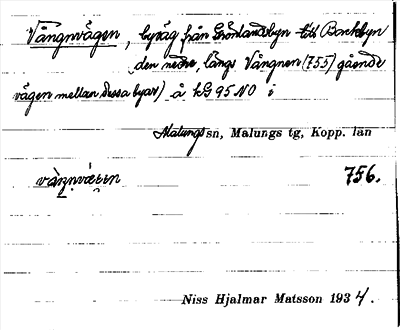 Vångnvägen, byväg från Grönlandsbyn till Backbyn
(den nedre, längs Vångnen (755) gående
vägen mellan dessa byar) å kG 95 NO i
Malungs sn, Malungs tg, Kopp. län
756.
Niss Hjalmar Matsson 1934.